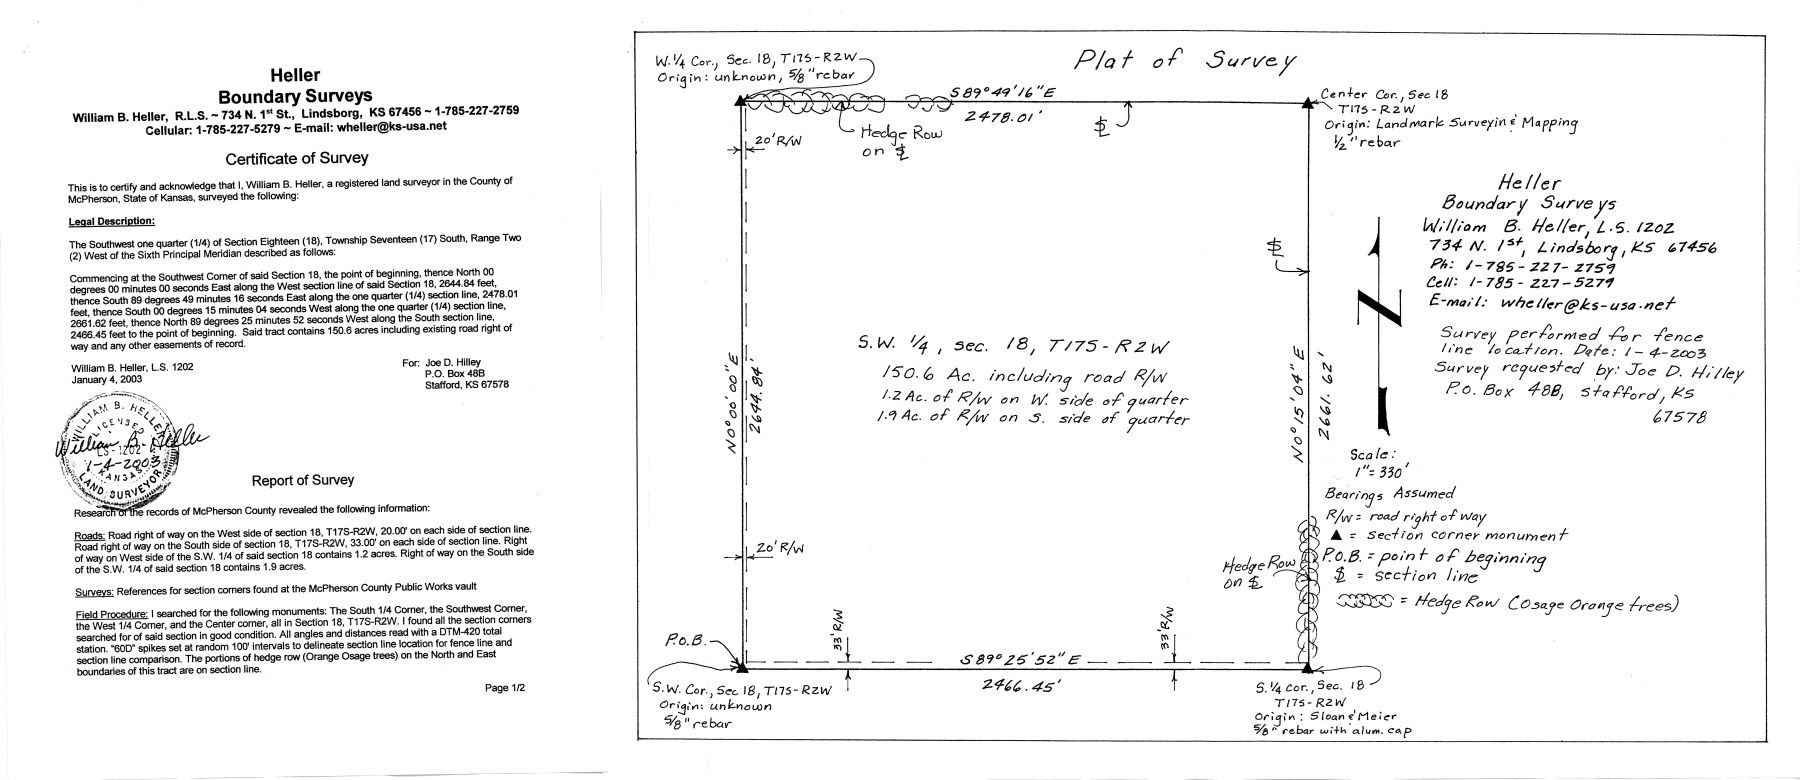 Heller
Boundary Surveys
William B. Heller, R.L.S. ~ 734 N. 1st St., Lindsborg, KS 67456 ~ 1-785-227-2759
Cellular: 1-785-227-5279 ~ E-mail: wheller@ks-usa.net
Certificate of Survey
This is to certify and acknowledge that I, William B. Heller, a registered land surveyor in the County of
McPherson, State of Kansas, surveyed the following:
Legal Description:
The Southwest one quarter (1/4) of Section Eighteen (18), Township Seventeen (17) South, Range Two
(2) West of the Sixth Principal Meridian described as follows:
Commencing at the Southwest Corner of said Section 18, the point of beginning, thence North 00
degrees 00 minutes 00 seconds East along the West section line of said Section 18, 2644.84 feet,
thence South 89 degrees 49 minutes 16 seconds East along the one quarter (1/4) section line, 2478.01
feet, thence South 00 degrees 15 minutes 04 seconds West along the one quarter (1/4) section line,
2661.62 feet, thence North 89 degrees 25 minutes 52 seconds West along the South section line,
2466.45 feet to the point of beginning. Said tract contains 150.6 acres including existing road right of
way and any other easements of record.
William B. Heller, L.S. 1202
January 4, 2003
For: Joe D. Hilley
P.O. Box 48B
Stafford, KS 67578
WILLIAM B. HELLER
LICENSED
William B. Heller
LS-1202
1-4-2003
KANSAS
LAND SURVEYOR
Report of Survey
Research of the records of McPherson County revealed the following information:
Roads: Road right of way on the West side of section 18, T17S-R2W, 20.00' on each side of section line.
Road right of way on the South side of section 18, T17S-R2W, 33.00' on each side of section line. Right
of way on West side of the S.W. 1/4 of said section 18 contains 1.2 acres. Right of way on the South side
of the S.W. 1/4 of said section 18 contains 1.9 acres.
Surveys: References for section corners found at the McPherson County Public Works vault
Field Procedure: I searched for the following monuments: The South 1/4 Corner, the Southwest Corner,
the West 1/4 Corner, and the Center corner, all in Section 18, T17S-R2W. I found all the section corners
searched for of said section in good condition. All angles and distances read with a DTM-420 total
station. "60D" spikes set at random 100' intervals to delineate section line location for fence line and
section line comparison. The portions of hedge row (Orange Osage trees) on the North and East
boundaries of this tract are on section line.
Page 1/2
Plat of Survey
W. 1/4 Cor., Sec. 18, T17S-R2W
Origin: unknown, 5/8" rebar
S 89° 49' 16" E
2478.01'
Hedge Row
on SL
SL
20' R/W
Center Cor., Sec 18
T17S-R2W
Origin: Landmark Surveyin & Mapping
1/2" rebar
Heller
Boundary Surveys
William B. Heller, L.S. 1202
734 N. 1st, Lindsborg, KS 67456
Ph: 1-785-227-2759
Cell: 1-785-227-5279
E-mail: wheller@ks-usa.net
Survey performed for fence
line location. Date: 1-4-2003
Survey requested by: Joe D. Hilley
P.O. Box 48B, Stafford, KS
67578
N
SL
S.W. 1/4, sec. 18, T17S-R2W
150.6 Ac. including road R/W
1.2 Ac. of R/W on W. side of quarter
1.9 Ac. of R/W on S. side of quarter
N 0° 00' 00" E
2644.84'
N 0° 15' 04" E
2661.62'
Scale:
1" = 330'
Bearings Assumed
R/W = road right of way
▲ = section corner monument
P.O.B. = point of beginning
SL = section line
= Hedge Row (Osage Orange trees)
20' R/W
Hedge Row
on SL
33' R/W
33' R/W
P.O.B.
S 89° 25' 52" E
2466.45'
S.W. Cor., Sec 18, T17S-R2W
Origin: unknown
5/8" rebar
S. 1/4 cor., Sec. 18
T17S-R2W
Origin: Sloan & Meier
5/8" rebar with alum. cap